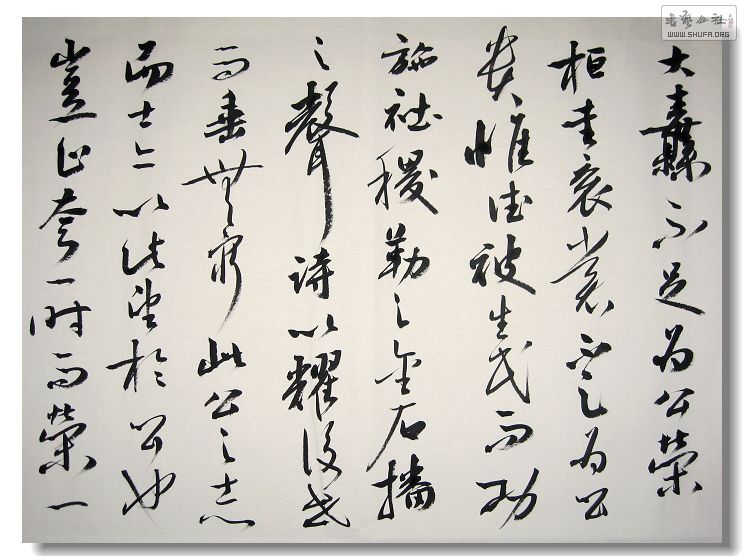 書藝公社
WWW.SHUFA.ORG
大纛不足為公榮
桓圭袞裳不足為公
貴惟德被生民而功
施社稷勒之金石播
之聲詩以耀後世
而垂無窮此公之志
而士亦以此望於公也
豈止夸一時而榮一